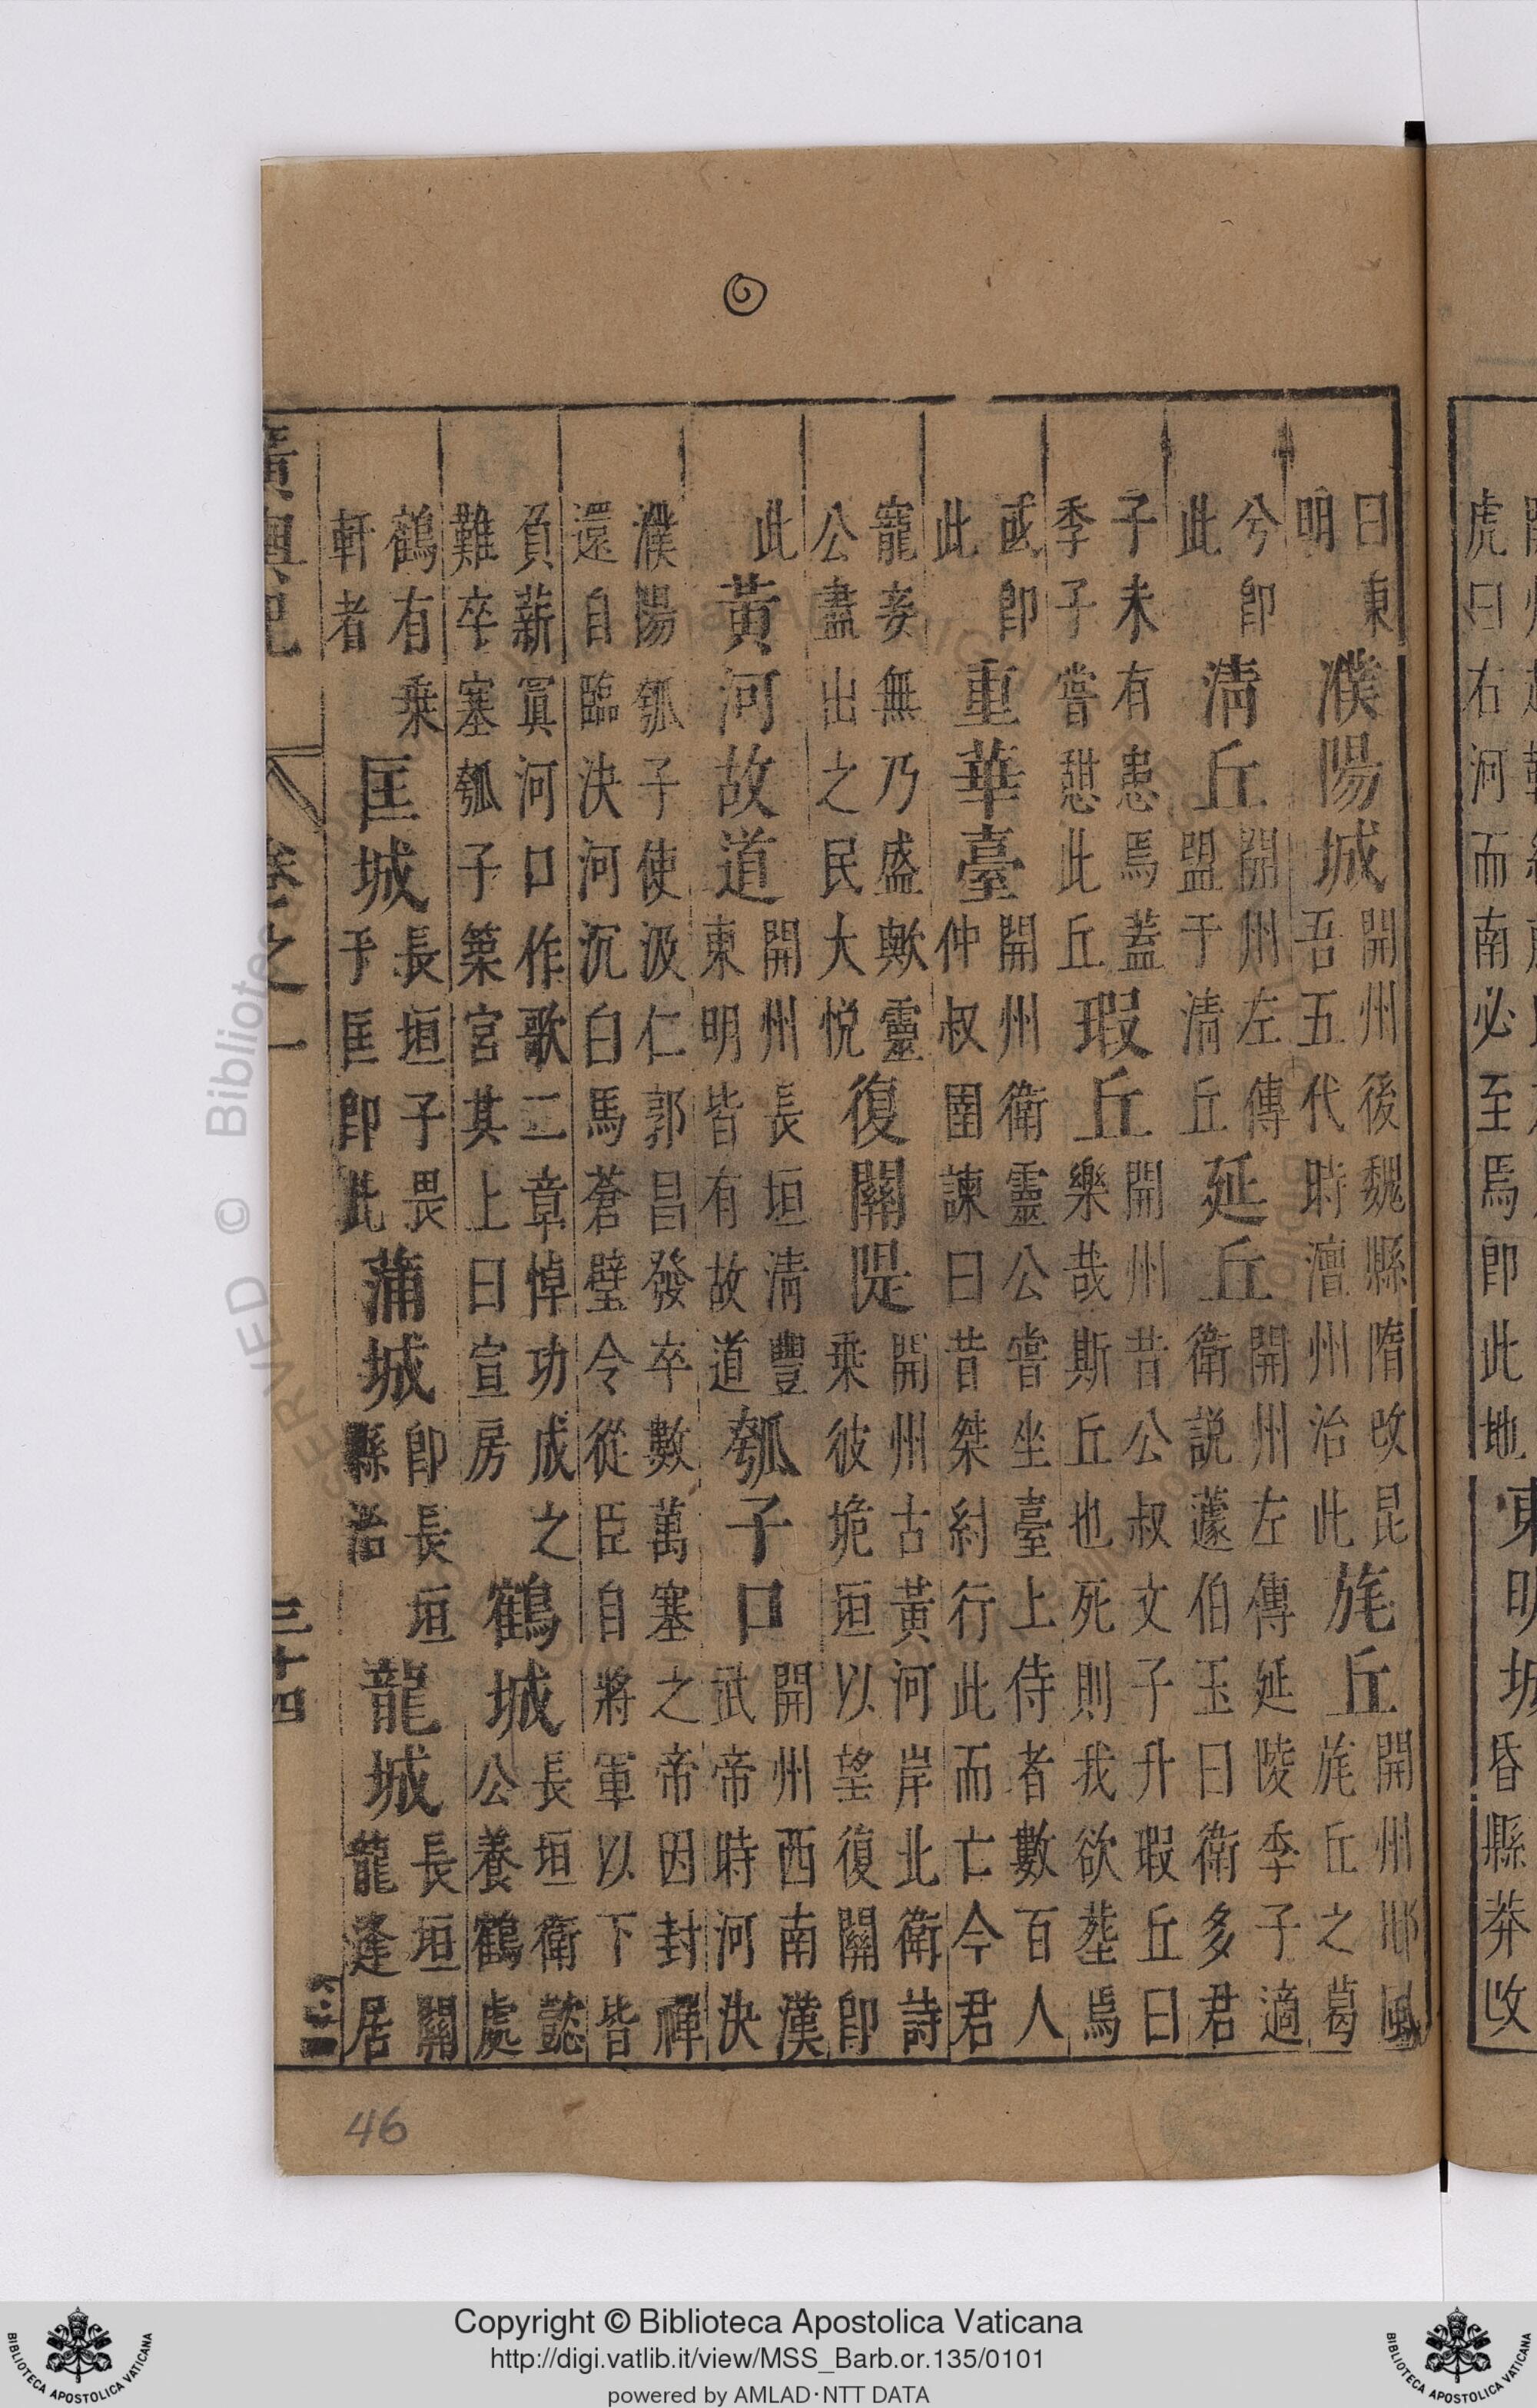 虎曰右河而南必至焉即此地
昏縣莽改
曰東
明
濮陽城
開州後魏縣隋改昆
吾五代時澶州治此
旄丘
開州邶風
旄丘之葛
兮即
此
清丘
開州左傳
盟于清丘
延丘
開州左傳延陵季子適
衛說蘧伯玉曰衛多君
子未有患焉蓋
季子嘗憇此丘
瑕丘
開州昔公叔文子升瑕丘曰
樂哉斯丘也死則我欲塟焉
或即
此
重華臺
開州衛靈公嘗坐臺上侍者數百人
仲叔圉諫曰昔桀紂行此而亡今君
寵妾無乃盛歟靈
公盡出之民大悅
復關隄
開州古黃河岸北衛詩
乗彼垝垣以望復關即
此
黃河故道
開州長垣清豐
東明皆有故道
瓠子口
開州西南漢
武帝時河決
濮陽瓠子使汲仁郭昌發卒數萬塞之帝因封禪
還自臨決河沉白馬蒼璧令從臣自將軍以下皆
負薪寘河口作歌二章悼功成之
難卒塞瓠子築宮其上曰宣房
鶴城
長垣衛懿
公養鶴處
鶴有乗
軒者
匡城
長垣子畏
于匡即此
蒲城
即長垣
縣治
龍城
長垣關
龍逢居
廣輿記 卷之一 三十四
46
Copyright © Biblioteca Apostolica Vaticana
http://digi.vatlib.it/view/MSS_Barb.or.135/0101
powered by AMLAD·NTT DATA
BIBLIOTECA APOSTOLICA VATICANA
BIBLIOTECA APOSTOLICA VATICANA